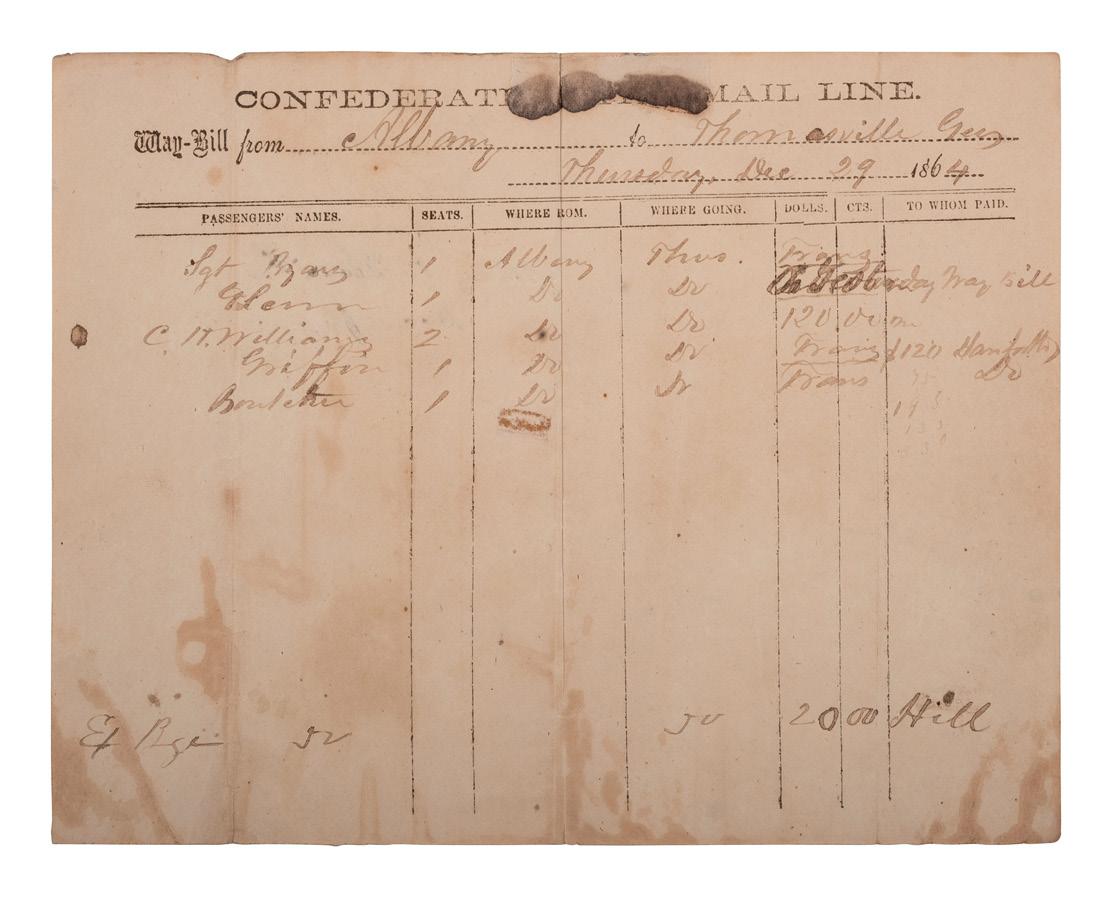 CONFEDERAT MAIL LINE.
Way-Bill from Albany to Thomasville Geo
Thursday, Dec 29 1864
PASSENGERS' NAMES. SEATS. WHERE ROM. WHERE GOING. DOLLS. CTS. TO WHOM PAID.
Sgt 1 Albany Thos. Trans
Glenn 1 Do Do Way Bill
C. H. Williams 2 Do Do 120 00
Griffon 1 Do Do Trans $120
Boutcher 1 Do Do Trans Do
Ex 50 50 20 00 Hill